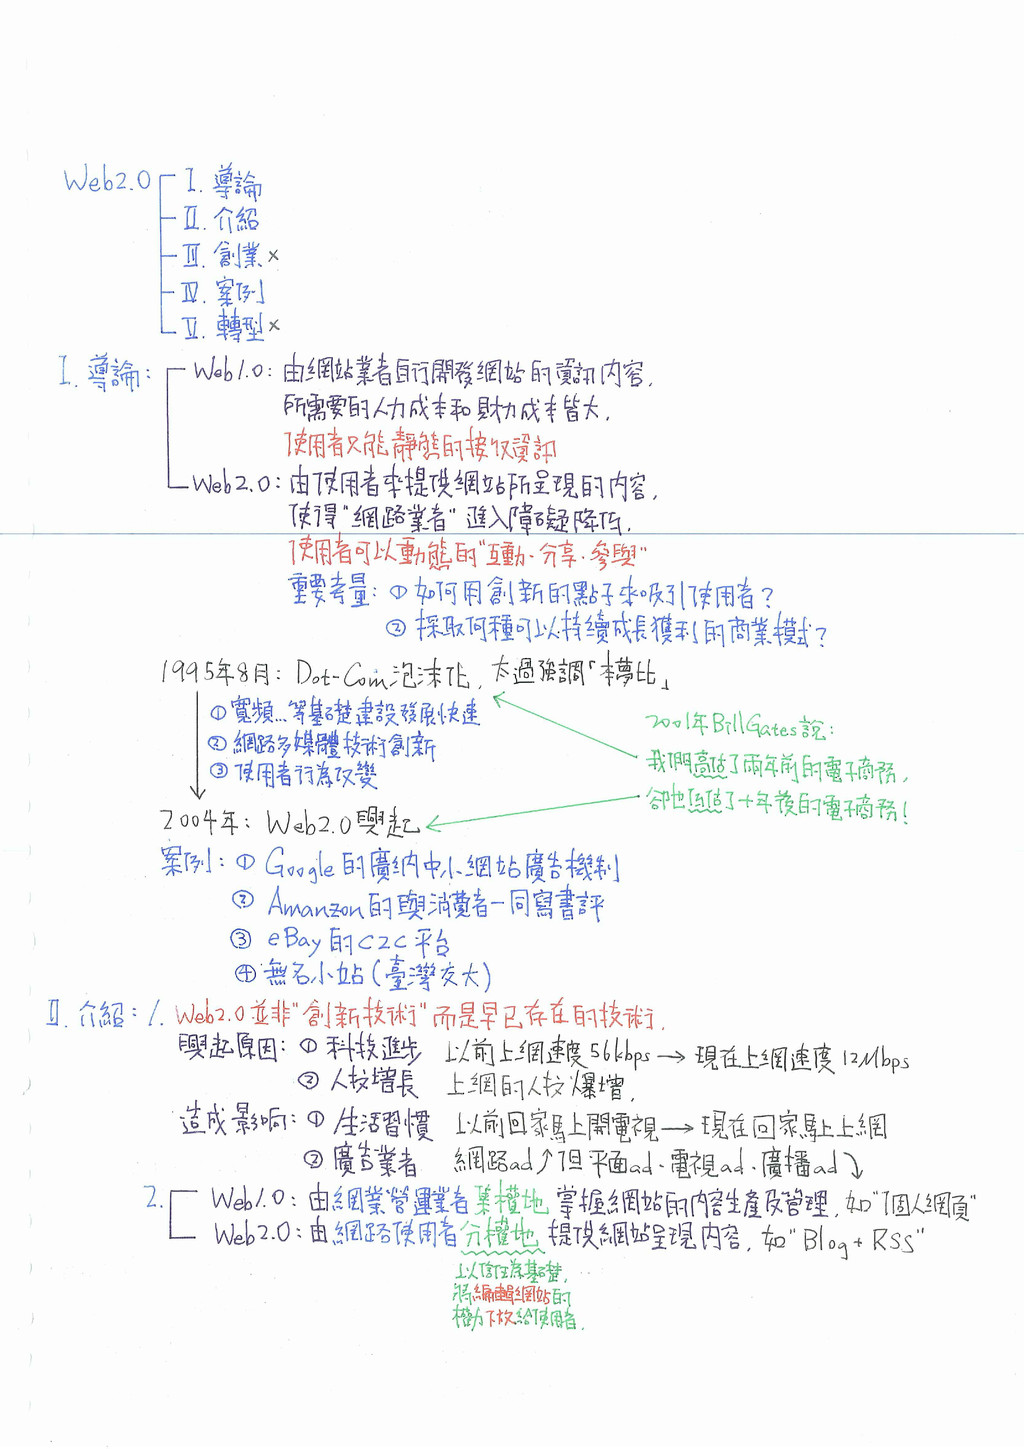 Web2.0 I. 導論
II. 介紹
III. 創業 ×
IV. 案例
V. 轉型 ×
I. 導論: Web1.0: 由網站業者自行開發網站的資訊內容,
所需要的人力成本和財力成本皆大,
使用者只能靜態的接收資訊
Web2.0: 由使用者來提供網站所呈現的內容,
使得"網路業者"進入障礙降低,
使用者可以動態的"互動·分享·參與"
重要考量: ① 如何用創新的點子來吸引使用者?
② 採取何種可以持續成長獲利的商業模式?
1995年8月: Dot-Com泡沫化, 太過強調「本夢比」
① 寬頻...等基礎建設發展快速
② 網路多媒體技術創新
③ 使用者行為改變
2001年Bill Gates說:
我們高估了兩年前的電子商務,
卻也低估了十年後的電子商務!
2004年: Web2.0興起
案例: ① Google的廣納中小網站廣告機制
② Amanzon的與消費者一同寫書評
③ eBay的C2C平台
④ 無名小站(臺灣交大)
II. 介紹: 1. Web2.0並非"創新技術"而是早已存在的技術,
興起原因: ① 科技進步 以前上網速度56kbps → 現在上網速度12Mbps
② 人校增長 上網的人校爆增,
造成影响: ① 生活習慣 以前回家馬上開電視 → 現在回家馬上上網
② 廣告業者 網路ad↑但平面ad·電視ad·廣播ad↓
2. Web1.0: 由網業營運業者集權地掌握網站的內容生產及管理, 如"個人網頁"
Web2.0: 由網路使用者分權地提供網站呈現內容, 如"Blog+RSS"
以信任為基礎,
將編輯網站的
權力下放給使用者.